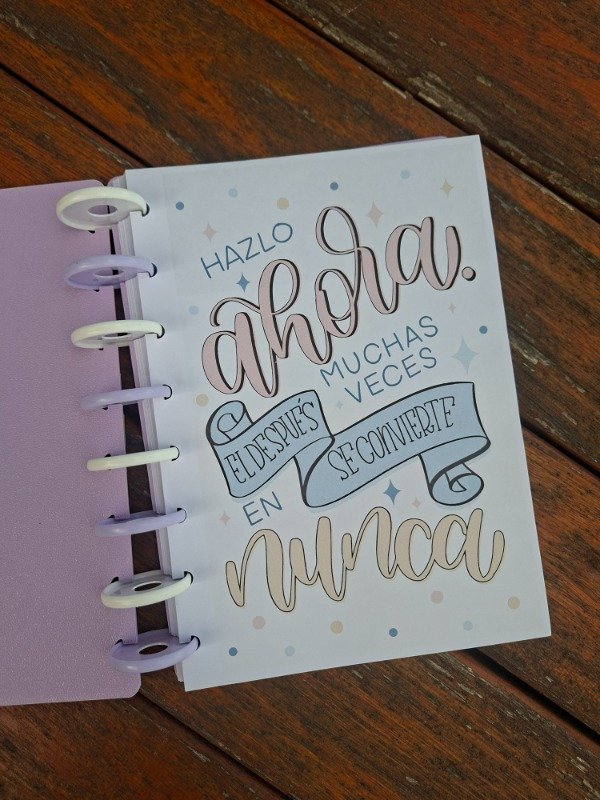 HAZLO
ahora.
MUCHAS
VECES
EL DESPUÉS
SE CONVIERTE
EN
nunca